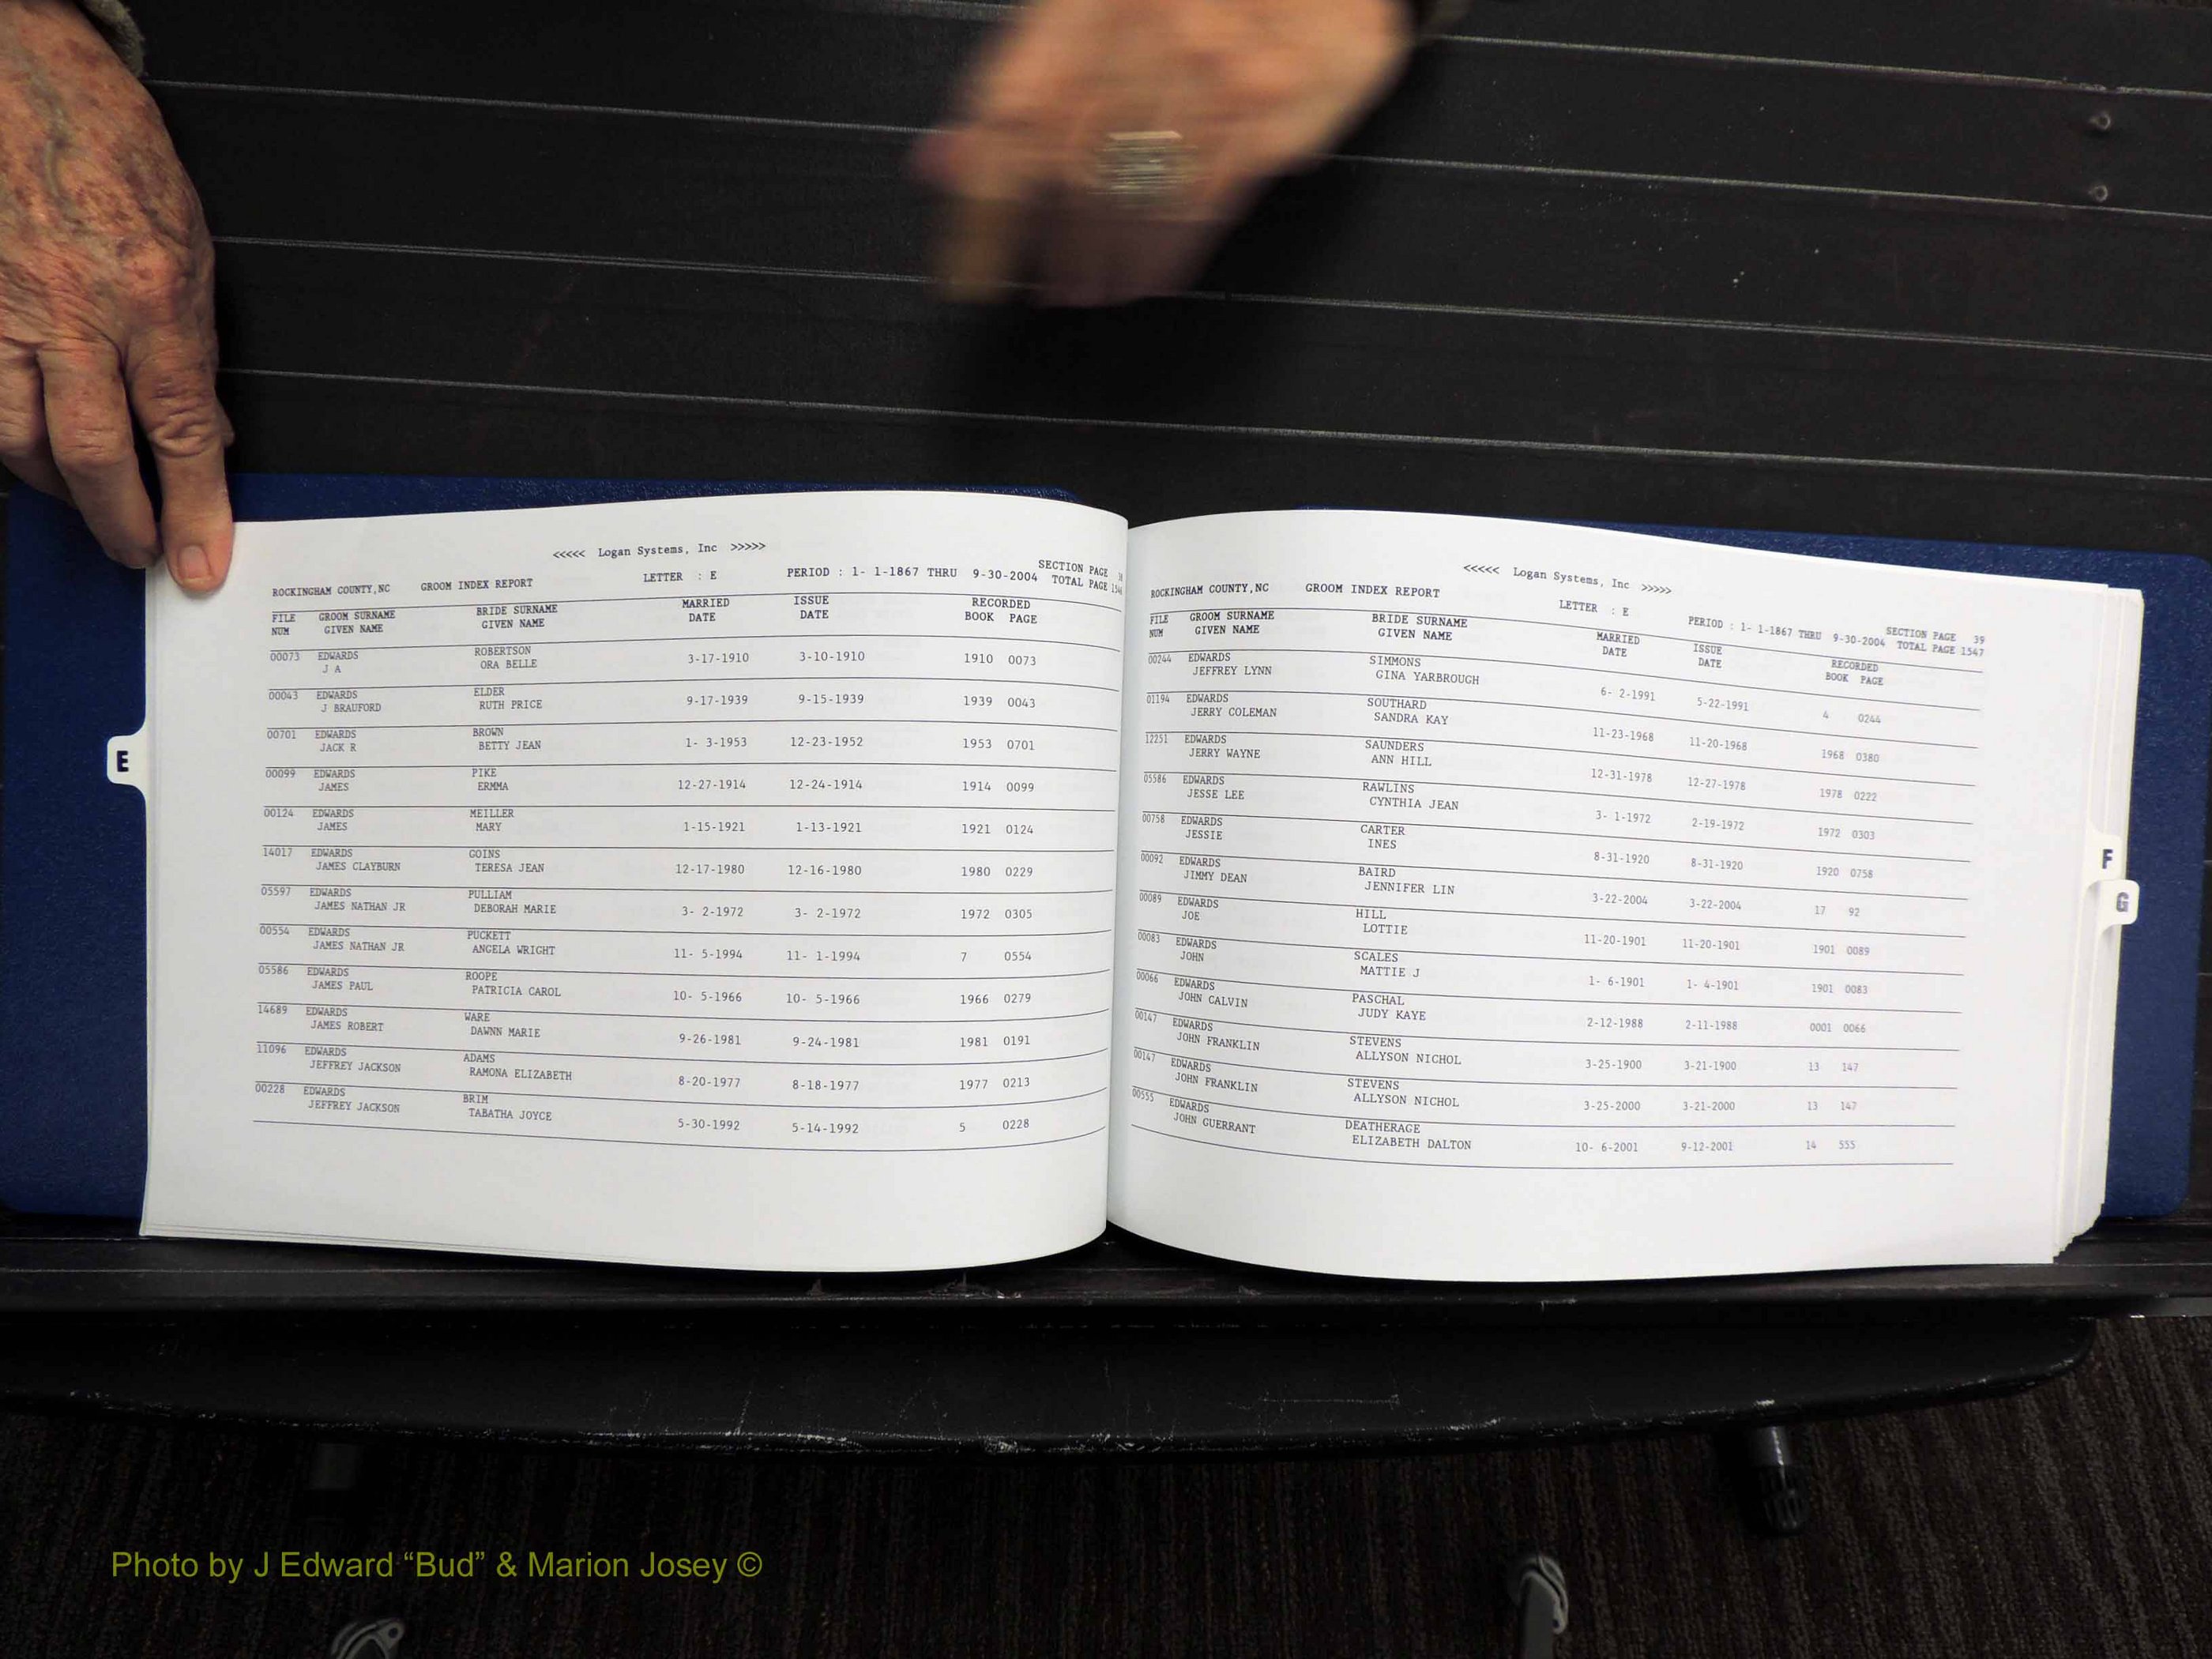 <<<<< Logan Systems, Inc >>>>>
ROCKINGHAM COUNTY,NC GROOM INDEX REPORT LETTER : E PERIOD : 1- 1-1867 THRU 9-30-2004 SECTION PAGE
TOTAL PAGE
FILE GROOM SURNAME BRIDE SURNAME MARRIED ISSUE RECORDED
NUM GIVEN NAME GIVEN NAME DATE DATE BOOK PAGE
00073 EDWARDS ROBERTSON
J A ORA BELLE 3-17-1910 3-10-1910 1910 0073
00043 EDWARDS ELDER
J BRAUFORD RUTH PRICE 9-17-1939 9-15-1939 1939 0043
00701 EDWARDS BROWN
JACK R BETTY JEAN 1- 3-1953 12-23-1952 1953 0701
00099 EDWARDS PIKE
JAMES ERMMA 12-27-1914 12-24-1914 1914 0099
00124 EDWARDS MEILLER
JAMES MARY 1-15-1921 1-13-1921 1921 0124
14017 EDWARDS GOINS
JAMES CLAYBURN TERESA JEAN 12-17-1980 12-16-1980 1980 0229
05597 EDWARDS PULLIAM
JAMES NATHAN JR DEBORAH MARIE 3- 2-1972 3- 2-1972 1972 0305
00554 EDWARDS PUCKETT
JAMES NATHAN JR ANGELA WRIGHT 11- 5-1994 11- 1-1994 7 0554
05586 EDWARDS ROOPE
JAMES PAUL PATRICIA CAROL 10- 5-1966 10- 5-1966 1966 0279
14689 EDWARDS WARE
JAMES ROBERT DAWNN MARIE 9-26-1981 9-24-1981 1981 0191
11096 EDWARDS ADAMS
JEFFREY JACKSON RAMONA ELIZABETH 8-20-1977 8-18-1977 1977 0213
00228 EDWARDS BRIM
JEFFREY JACKSON TABATHA JOYCE 5-30-1992 5-14-1992 5 0228
E
<<<<< Logan Systems, Inc >>>>>
ROCKINGHAM COUNTY,NC GROOM INDEX REPORT LETTER : E PERIOD : 1- 1-1867 THRU 9-30-2004 SECTION PAGE 39
TOTAL PAGE 1547
FILE GROOM SURNAME BRIDE SURNAME MARRIED ISSUE RECORDED
NUM GIVEN NAME GIVEN NAME DATE DATE BOOK PAGE
00244 EDWARDS SIMMONS
JEFFREY LYNN GINA YARBROUGH 6- 2-1991 5-22-1991 4 0244
01194 EDWARDS SOUTHARD
JERRY COLEMAN SANDRA KAY 11-23-1968 11-20-1968 1968 0380
12251 EDWARDS SAUNDERS
JERRY WAYNE ANN HILL 12-31-1978 12-27-1978 1978 0222
05586 EDWARDS RAWLINS
JESSE LEE CYNTHIA JEAN 3- 1-1972 2-19-1972 1972 0303
00758 EDWARDS CARTER
JESSIE INES 8-31-1920 8-31-1920 1920 0758
00092 EDWARDS BAIRD
JIMMY DEAN JENNIFER LIN 3-22-2004 3-22-2004 17 92
00089 EDWARDS HILL
JOE LOTTIE 11-20-1901 11-20-1901 1901 0089
00083 EDWARDS SCALES
JOHN MATTIE J 1- 6-1901 1- 4-1901 1901 0083
00066 EDWARDS PASCHAL
JOHN CALVIN JUDY KAYE 2-12-1988 2-11-1988 0001 0066
00147 EDWARDS STEVENS
JOHN FRANKLIN ALLYSON NICHOL 3-25-1900 3-21-1900 13 147
00147 EDWARDS STEVENS
JOHN FRANKLIN ALLYSON NICHOL 3-25-2000 3-21-2000 13 147
00555 EDWARDS DEATHERAGE
JOHN GUERRANT ELIZABETH DALTON 10- 6-2001 9-12-2001 14 555
F
G
Photo by J Edward “Bud” & Marion Josey ©